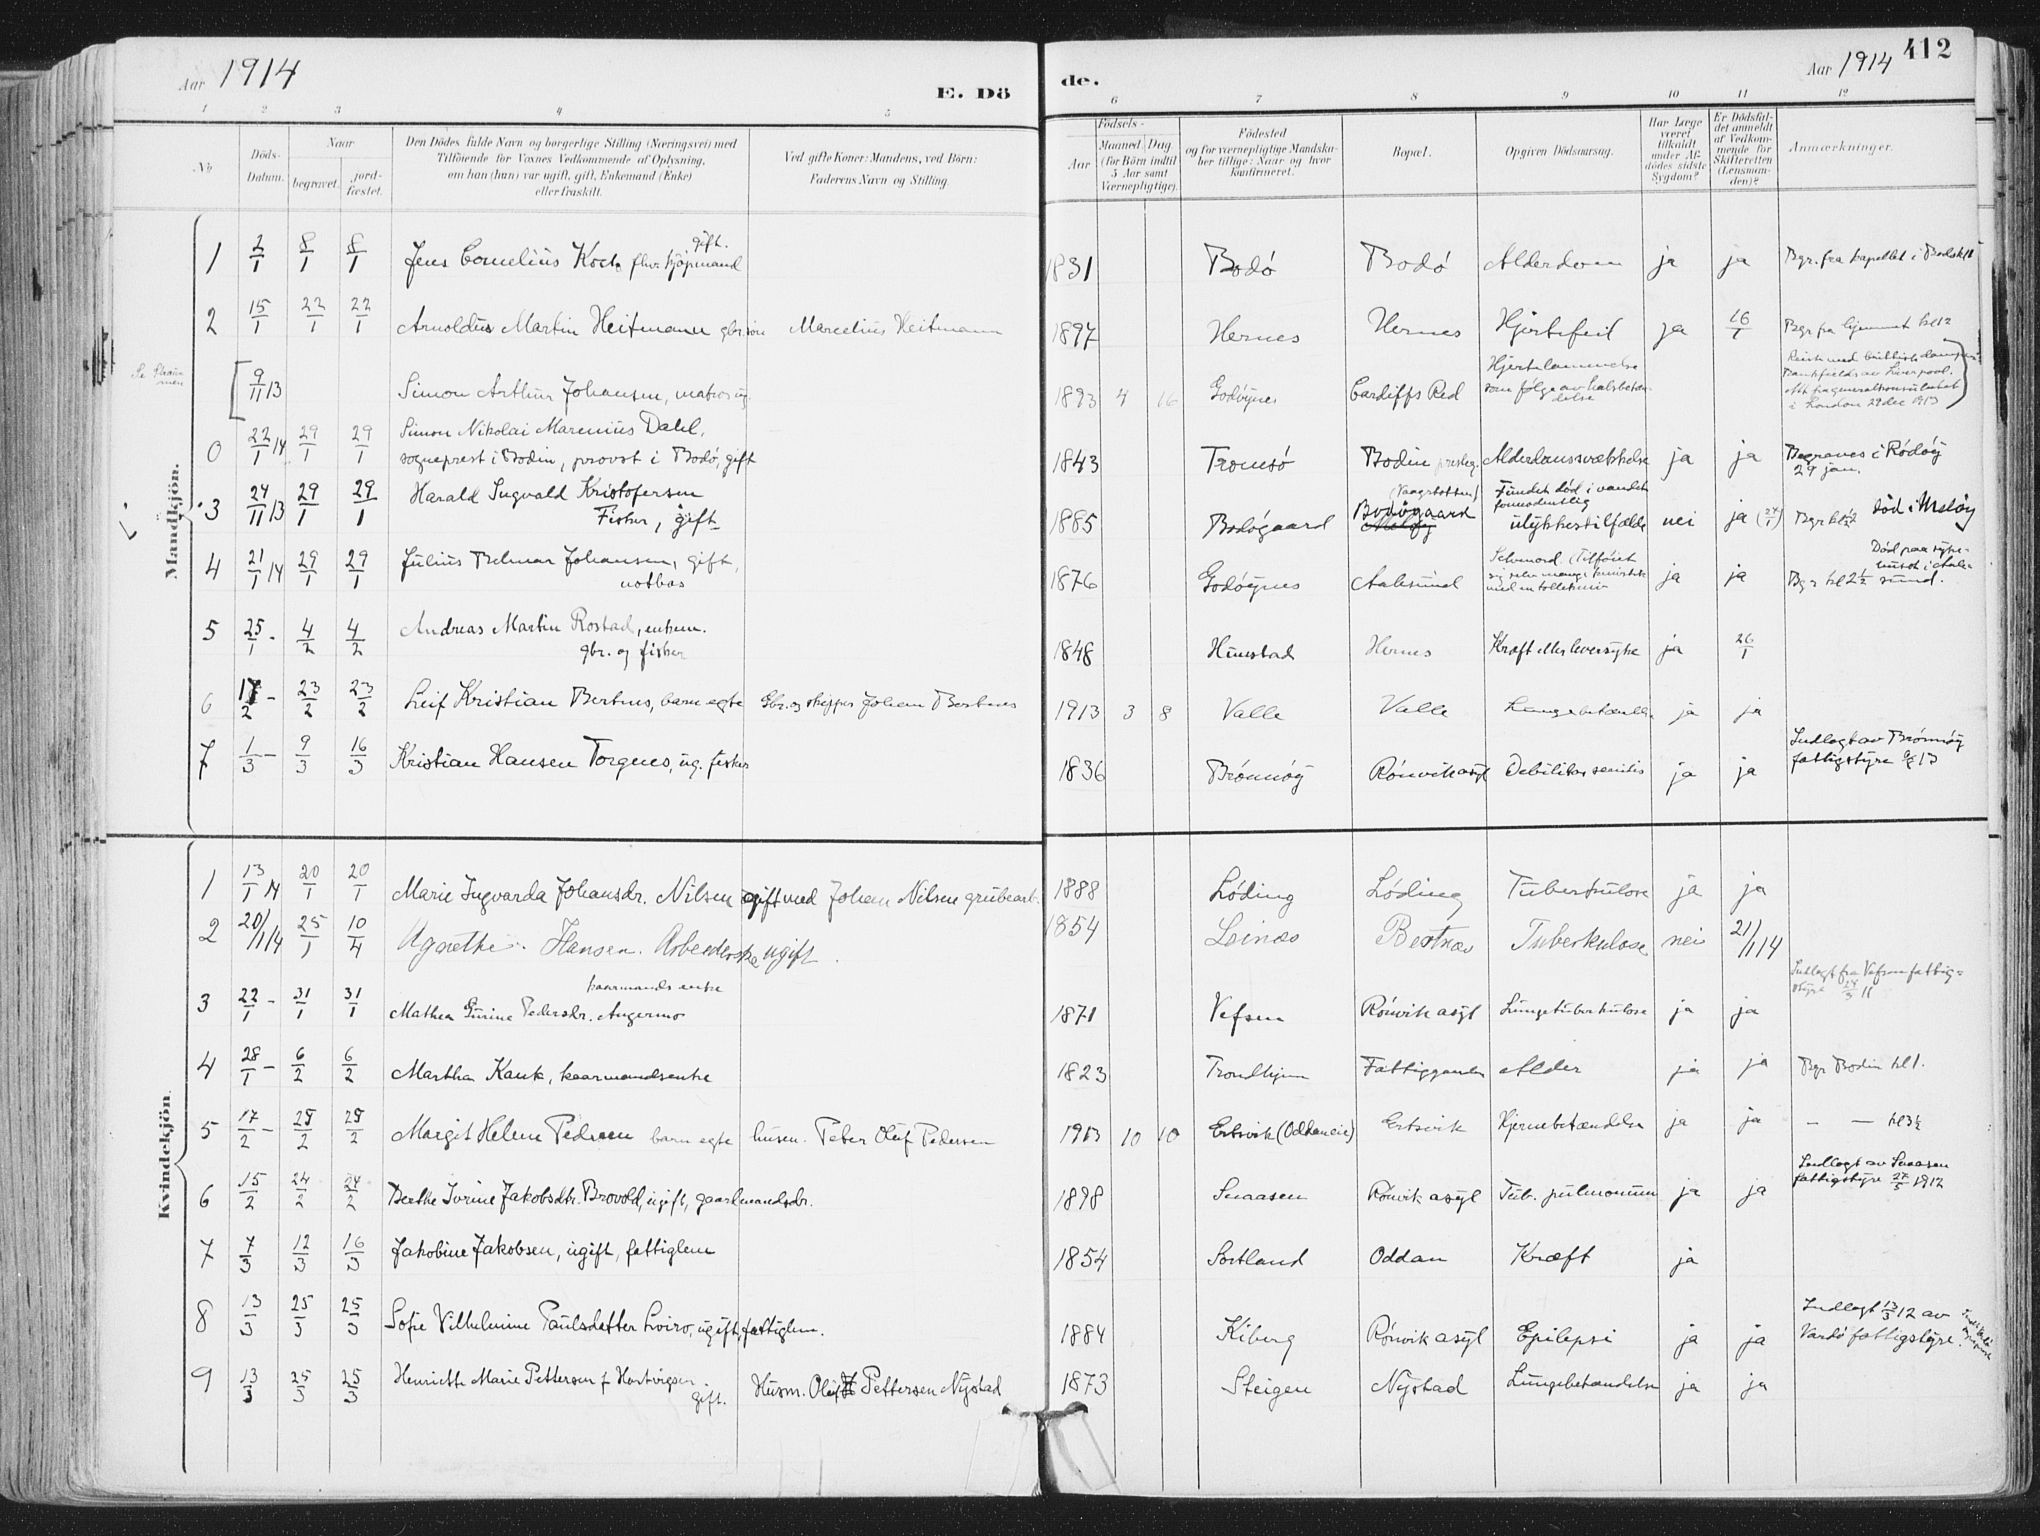 Aar 1914
E. Dö
de.
Aar 1914
412
1 2 3 4 5 6 7 8 9 10 11 12
No
Döds-Datum.
Naar
begravet.
jord-fæstet.
Den Dödes fulde Navn og borgerlige Stilling (Næringsvei) med
Tilföiende for Voxnes Vedkommende af Oplysning,
om han (hun) var ugift, gift, Enkemand (Enke)
eller fraskilt.
Ved gifte Koner: Mandens, ved Börn:
Faderens Navn og Stilling.
Födsels-
Aar
Maaned Dag
(for Börn indtil
5 Aar samt
Værnepligtige).
Födested
og for værnepligtige Mandska-
ber tillige: Naar og hvor
konfirmeret.
Bopæl.
Opgiven Dödsaarsag.
Har Læge
været
tilkaldt
under Af-
dödes sidste
Sygdom?
Er Dödsfal-
det anmeldt
af Vedkom-
mende for
Skifteretten
(Lensman-
den)?
Anmærkninger.
Mandkjön.
1 2/1 8/1 8/1 Jens Cornelius Koch fhv. kjöpmand gift. 1831 Bodø Bodø Alderdom ja ja Bgr. fra kapellet i Bodø
2 15/1 22/1 22/1 Arnoldus Martin Heitmann gbr.søn Marcelius Heitmann 1897 Hernes Hernes Hjertefeil ja 16/1 Bgr fra hjemmet kl 12
9/11 13 Simon Arthur Johansen, matros ug. 1893 4 16 Godøynes Cardiffs Red Hjertelammelse
som følge av halsbetændelse
i London 29 dec 1913
0 22/1 14 29/1 29/1 Simon Nikolai Marenius Dahl,
sogneprest i Bodin, provst i Bodø, gift 1843 Tromsø Bodin presteg. Alderdomssvækkelse ja ja Begraves i Rødøy
29 jan.
3 24/11 13 29/1 29/1 Harald Ingvald Kristofersen
Fisker, gift 1885 Bodøgaard Bodøgaard Fundet død i vandet
formodentlig
ulykkestilfælde nei ja (24/1) død i Meløy
4 21/1 14 29/1 29/1 Julius Johansen, gift,
notbas 1876 Godøynes Aalesund Selvmord ja ja Bgr kl 2½ Død paa syke-
huset i Aale-
sund.
5 25/1 - 4/2 4/2 Andreas Martin Rostad, enkem.
gbr. og fisker 1848 Hunstad Hernes Kræft eller leversyke ja 26/1
6 17/2 - 23/2 23/2 Leif Kristian Bertnes, barn egte Gbr. og skipper Johan Bertnes 1913 3 8 Valle Valle Lungebetændelse ja ja
7 1/3 - 9/3 16/3 Kristian Hansen Torgnes, ug. fisker 1836 Brønnøy Rönvik asyl Debilitas senilis ja ja Indlagt av Brønnøy
fattigstyre 13
Kvindekjön.
1 13/1 14 20/1 20/1 Marie Ingvarda Johansdr. Nilsen gift med Johan Nilsen grubearb. 1888 Løding Løding Tuberkulose ja ja
2 20/1 14 25/1 10/4 Agnethe Hansen. Arbeiderske ugift. 1854 Leinæs Bertnæs Tuberkulose nei 21/1 14
3 22/1 - 31/1 31/1 kaarmands enke
Mathea Gurine Pedersdr. Angermo 1871 Vefsen Rønvik asyl Lungetuberkulose ja ja Indlagt fra Vefsen fattig-
styre 11
4 28/1 - 6/2 6/2 Martha Kauk, kaarmandsenke 1823 Trondhjem Fattiggaarden Alder ja ja Bgr Bodin kl 1.
5 17/2 - 25/2 25/2 Margit Helene Pedersen barn egte husm. Peter Oluf Pedersen 1913 10 10 Ertsvik (Oddaneie) Ertsvik Hjernebetændelse ja ja — — kl 3½
6 15/2 24/2 24/2 Berthe Ivrine Jakobsdtr. Brovold, ugift, gaardmandsdr. 1898 Snaasen Rönvik asyl Tub. pulmonum ja ja Indlagt av Snaasen
fattigstyre 27/5 1912
7 7/3 12/3 16/3 Jakobine Jakobsen, ugift, fattiglem 1854 Sortland Oddan Kræft ja
8 13/3 25/3 25/3 Sofie Vilhelmine Paulsdatter, ugift, fattiglem. 1884 Kiberg Rønvik asyl Epilepsi ja ja Indlagt 13/3 12 av
Vardø fattigstyre.
9 13/3 25/3 25/3 Henriette Marie Pettersen f. Hartvigsen
gift. Husm. Oluf Pettersen Nystad 1873 Steigen Nystad Lungebetændelse ja ja